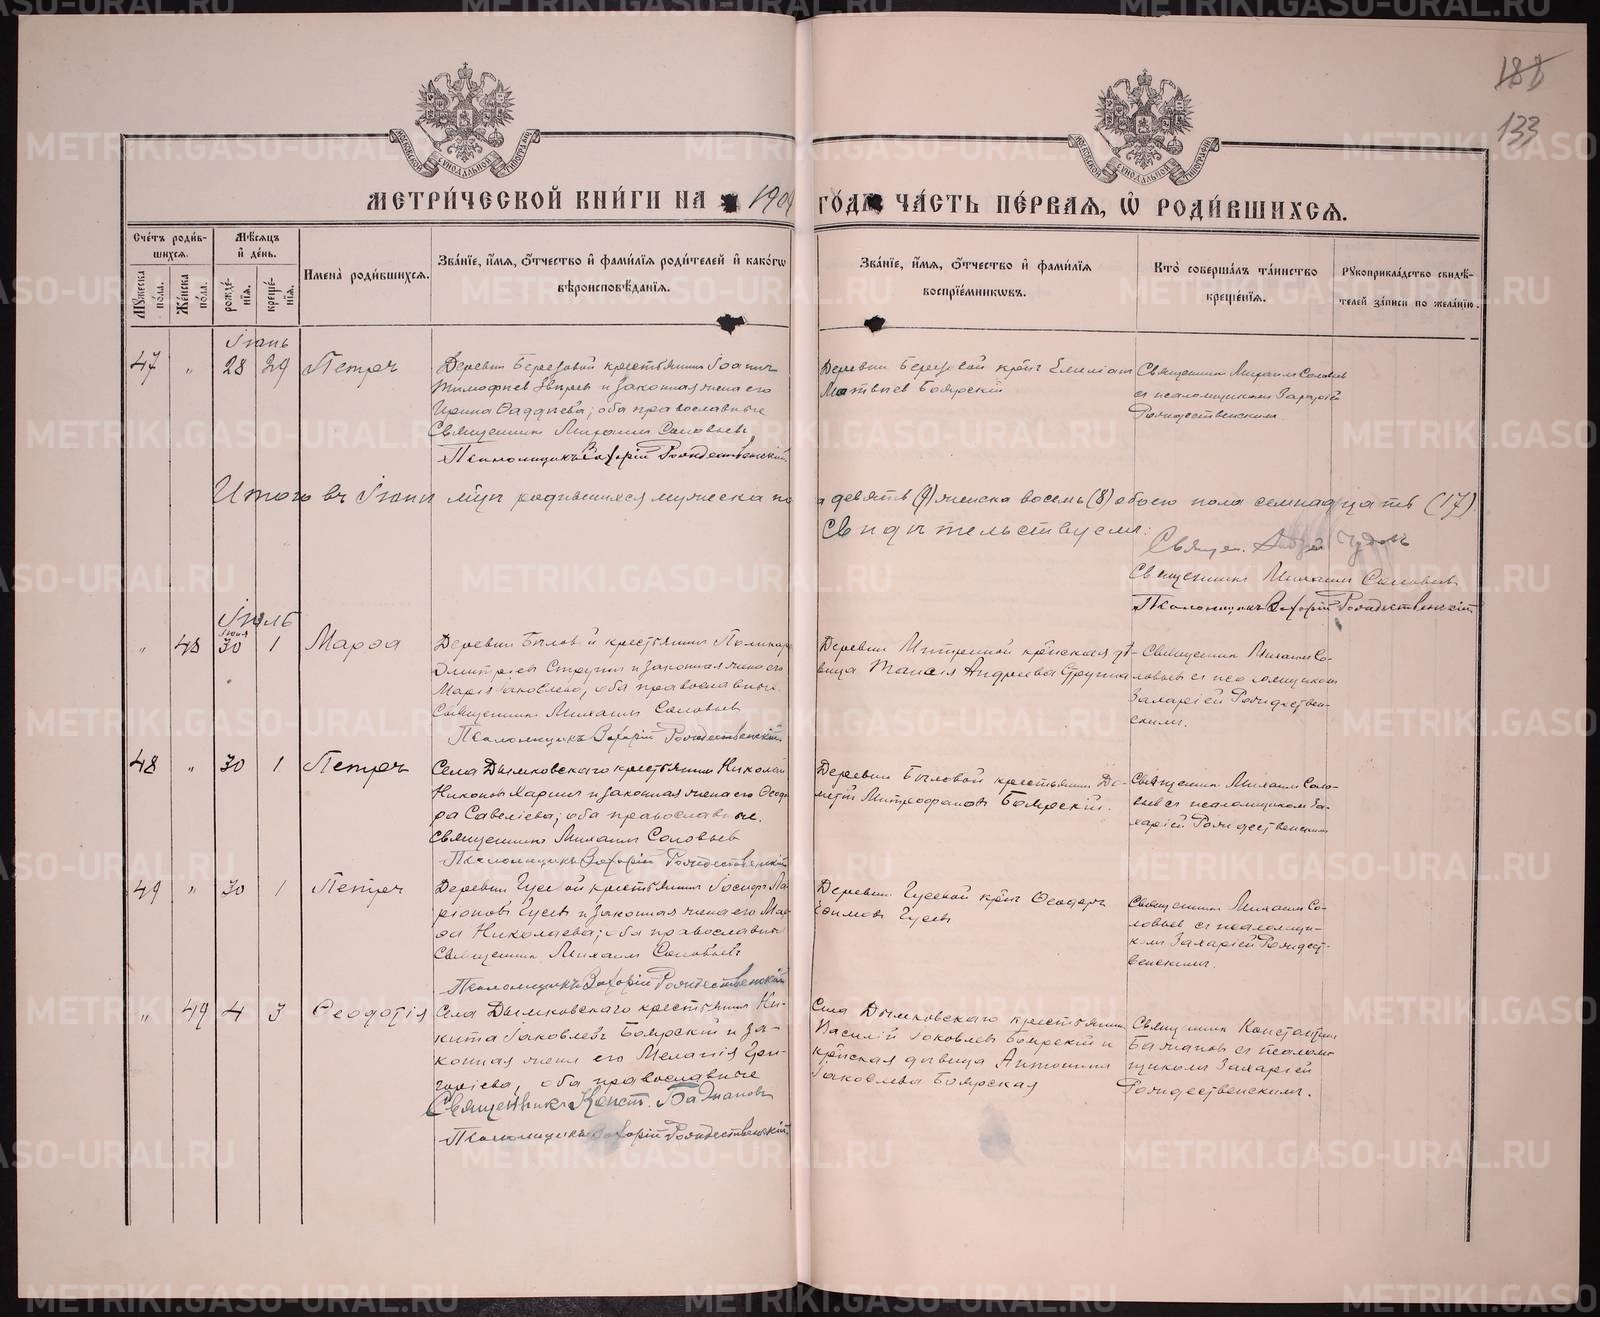 188
133
МОСКОВСКОЙ СѴНОДАЛЬНОЙ ТИПОГРАФІИ
МОСКОВСКОЙ СѴНОДАЛЬНОЙ ТИПОГРАФІИ
МЕТРИ́ЧЕСКОЙ КНИ́ГИ НА 1904 ГО́ДЪ ЧА́СТЬ ПЕ́РВАЯ, Ѡ РОДИ́ВШИХСЯ.
Сче́тъ роди́в-
шихся.
Мѣ́сяцъ
и҆ де́нь.
Мꙋ́жеска по́ла.
Же́нска по́ла.
рожде́-
нїя.
креще́-
нїя.
И҆мена̀ роди́вшихся.
Зва́нїе, и҆́мя, ѻ҆́тчество и҆ фами́лїя роди́телей и҆ како́гѡ
вѣроисповѣ́данїя.
Зва́нїе, и҆́мя, ѻ҆́тчество и҆ фами́лїя
воспрїе́мникѡвъ.
Кто̀ соверша́лъ та́инство
креще́нїя.
Рꙋкоприкла́дство свидѣ́-
телей за́писи по жела́нїю.
Іюнь
47 " 28 29 Петръ
Деревни Березовой крестьянинъ Іоаннъ
Тимофеевъ Звѣревъ и законная жена его
Ирина Фаддеева; оба православные
Священникъ Михаилъ Соловьевъ
Псаломщикъ Захарій Рождественскій
Деревни Березовой кр-нъ Емеліанъ
Матвеевъ Боярскій
Священникъ Михаилъ Соловьевъ
съ псаломщикомъ Захаріей
Рождественскимъ
Итого въ Іюнѣ м-цѣ родившихся мужеска по
а девять (9) женска восемь (8) обоего пола семнадцать (17)
Свидѣтельствуемъ:
Священ.
Священникъ Михаилъ Соловьевъ
Псаломщикъ Захарій Рождественскій
Іюль
Іюня
" 48 30 1 Марѳа
Деревни Быловой крестьянинъ Поликарпъ
Дмитріевъ и законная жена его
Марія Іаковлева, оба православные.
Священникъ Михаилъ Соловьевъ
Псаломщикъ Захарій Рождественскій
Деревни кр-нская дѣ-
вица Таисія Андреева
Священникъ Михаилъ Со-
ловьевъ съ псаломщикомъ
Захаріей Рождествен-
скимъ.
48 " 30 1 Петръ
Села Дымковскаго крестьянинъ Николай
Никоновъ и законная жена его Ѳеодо-
ра Савеліева; оба православные.
Священникъ Михаилъ Соловьевъ
Псаломщикъ Захарій Рождественскій
Деревни Быловой крестьянинъ Ди-
митрій Митрофановъ Боярскій.
Священникъ Михаилъ Соло-
вьевъ съ псаломщикомъ За-
харіей Рождественскимъ
49 " 30 1 Петръ
Деревни Гусевой крестьянинъ Іосифъ Ла-
ріоновъ Гусевъ и законная жена его Мар-
ѳа Николаева; оба православные
Священникъ Михаилъ Соловьевъ
Псаломщикъ Захарій Рождественскій
Деревни Гусевой кр-нъ Ѳеодоръ
Ефимовъ Гусевъ
Священникъ Михаилъ Со-
ловьевъ съ псаломщи-
комъ Захаріей Рождест-
венскимъ.
" 49 4 3 Ѳеодотія
Села Дымковскаго крестьянинъ Ни-
кита Іаковлевъ Боярскій и за-
конная жена его Меланія Гри-
горіева, оба православные
Священникъ Конст. Бажановъ
Псаломщикъ Захарій Рождественскій
Села Дымковскаго крестьянинъ
Василій Іаковлевъ Боярскій и
кр-нская дѣвица Антонина
Іаковлева Боярская
Священникъ Константинъ
Бажановъ съ псалом-
щикомъ Захаріей
Рождественскимъ.
METRIKI.GASO-URAL.RU